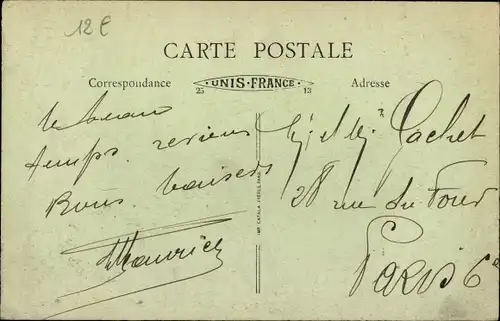 12 €
CARTE POSTALE
Correspondance
UNIS-FRANCE
25 13
Adresse
le beau
temps reviens
Bons baisers
Maurice
Gachet
28 rue du Four
PARIS 6e
IMP. CATALA FRÈRES, PARIS